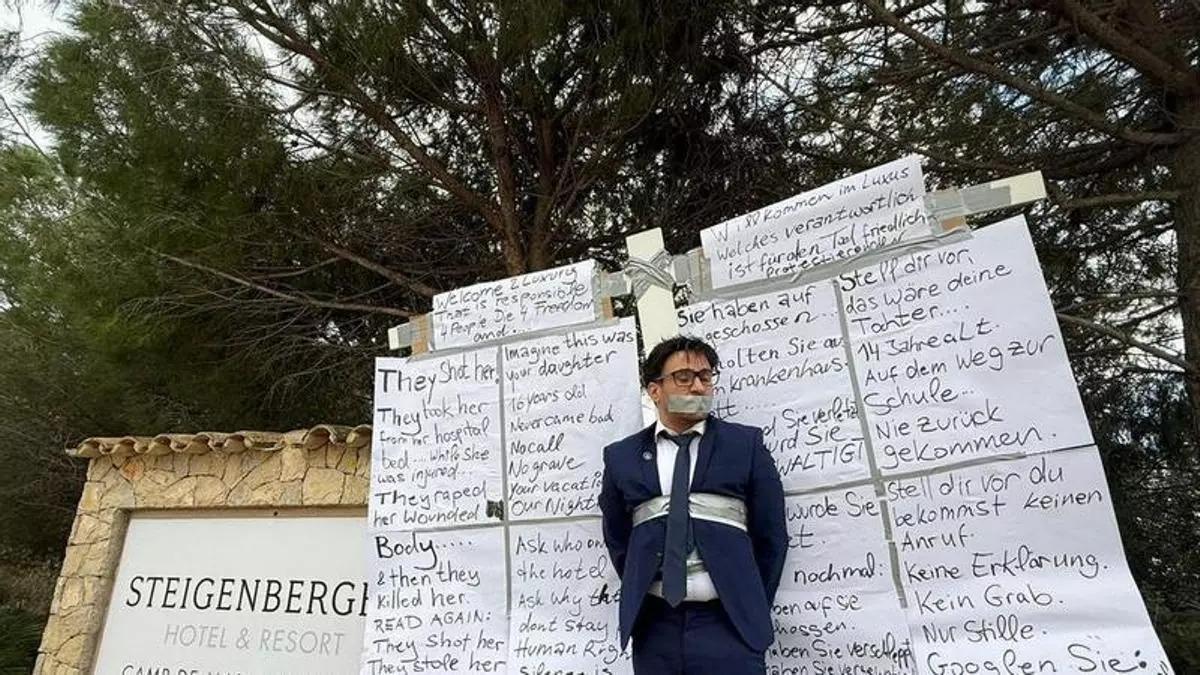 Willkommen im Luxus
Welches verantwortlich
ist für den Tod friedlich
Welcome 2 Luxury
That is responsible
4 People Die 4 Freedom
and....
They shot her
They took her
from her hospital
bed... while she
was injured...
They raped
her Wounded
Body.....
& then they
killed her.
READ AGAIN:
They shot her
They stole her
Imagine this was
your daughter
16 years old
Never came bad
No call
No grave
Your vacati
Our Night
Ask who
the hotel
Ask why
dont stay
Human Righ
Silence is
Sie haben auf
geschossen...
holten Sie au
krankenhaus
Sie verletzt
wurd Sie
WALTIGT
wurde Sie
nochmal:
ben auf sie
hossen.
haben Sie verschleppt
haben Sie
Stell dir vor,
das wäre deine
Tochter....
14 Jahre alt.
Auf dem Weg zur
Schule...
Nie zurück
gekommen.
stell dir vor du
bekommst keinen
Anruf.
Keine Erklärung.
Kein Grab.
Nur Stille.
Googlen Sie:
STEIGENBERGE
HOTEL & RESORT
CAMP DE